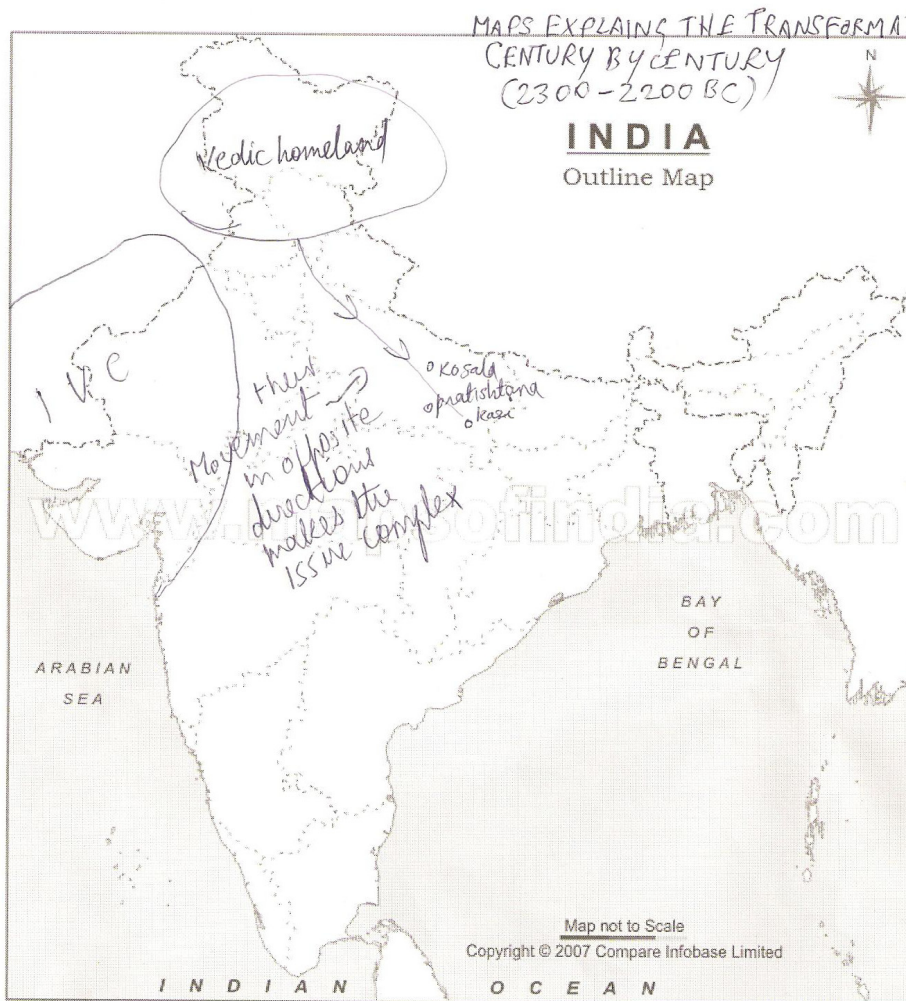 MAPS EXPLAING THE TRANSFORMA
CENTURY BY CENTURY
(2300-2200 BC)
N
INDIA
Outline Map
Vedic homeland
IVC
their
Movement
in opposite
directions
makes the
issue complex
Kosala
pratishtana
Kasi
www.mapsofindia.com
BAY
OF
BENGAL
ARABIAN
SEA
Map not to Scale
Copyright © 2007 Compare Infobase Limited
INDIAN OCEAN